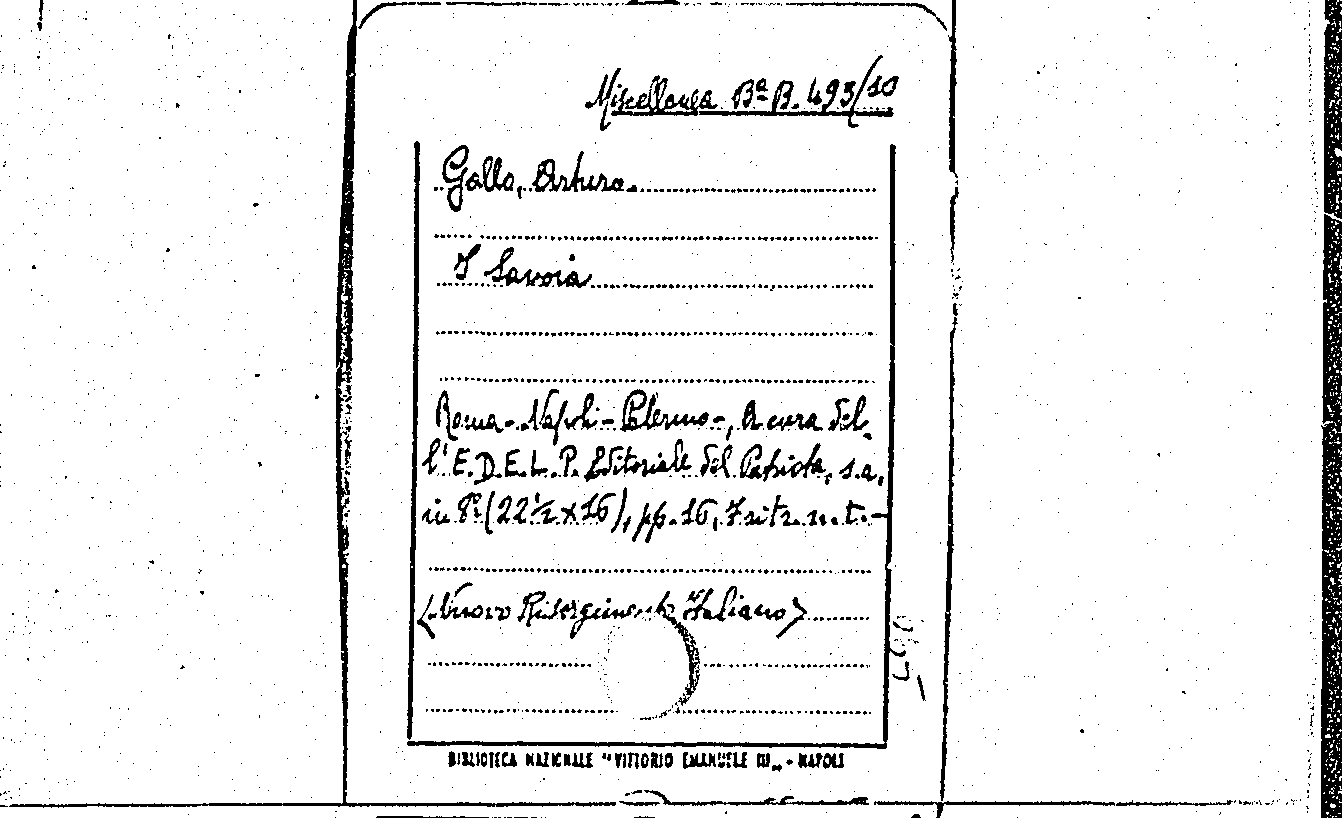 Miscellanea Bª B. 493/10
Gallo, Arturo.
I Savoia
Roma - Napoli - Palermo -, A cura del,
l'E.D.E.L.P. Editoriale del Patriota, s.a,
in 8° (22½ x 16), pp. 16, 7 ritr. n. t. -
<Nuovo Risorgimento Italiano>
BIBLIOTECA NAZIONALE "VITTORIO EMANUELE III„ - NAPOLI